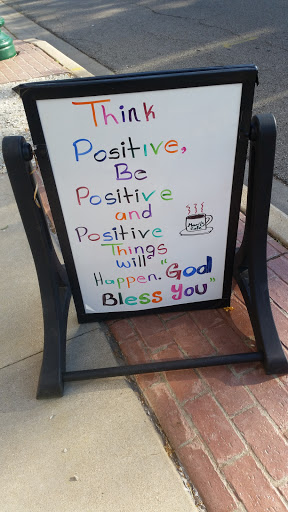 Think
Positive,
Be
Positive
and
Positive
Things
will "
Happen. God
Bless You"